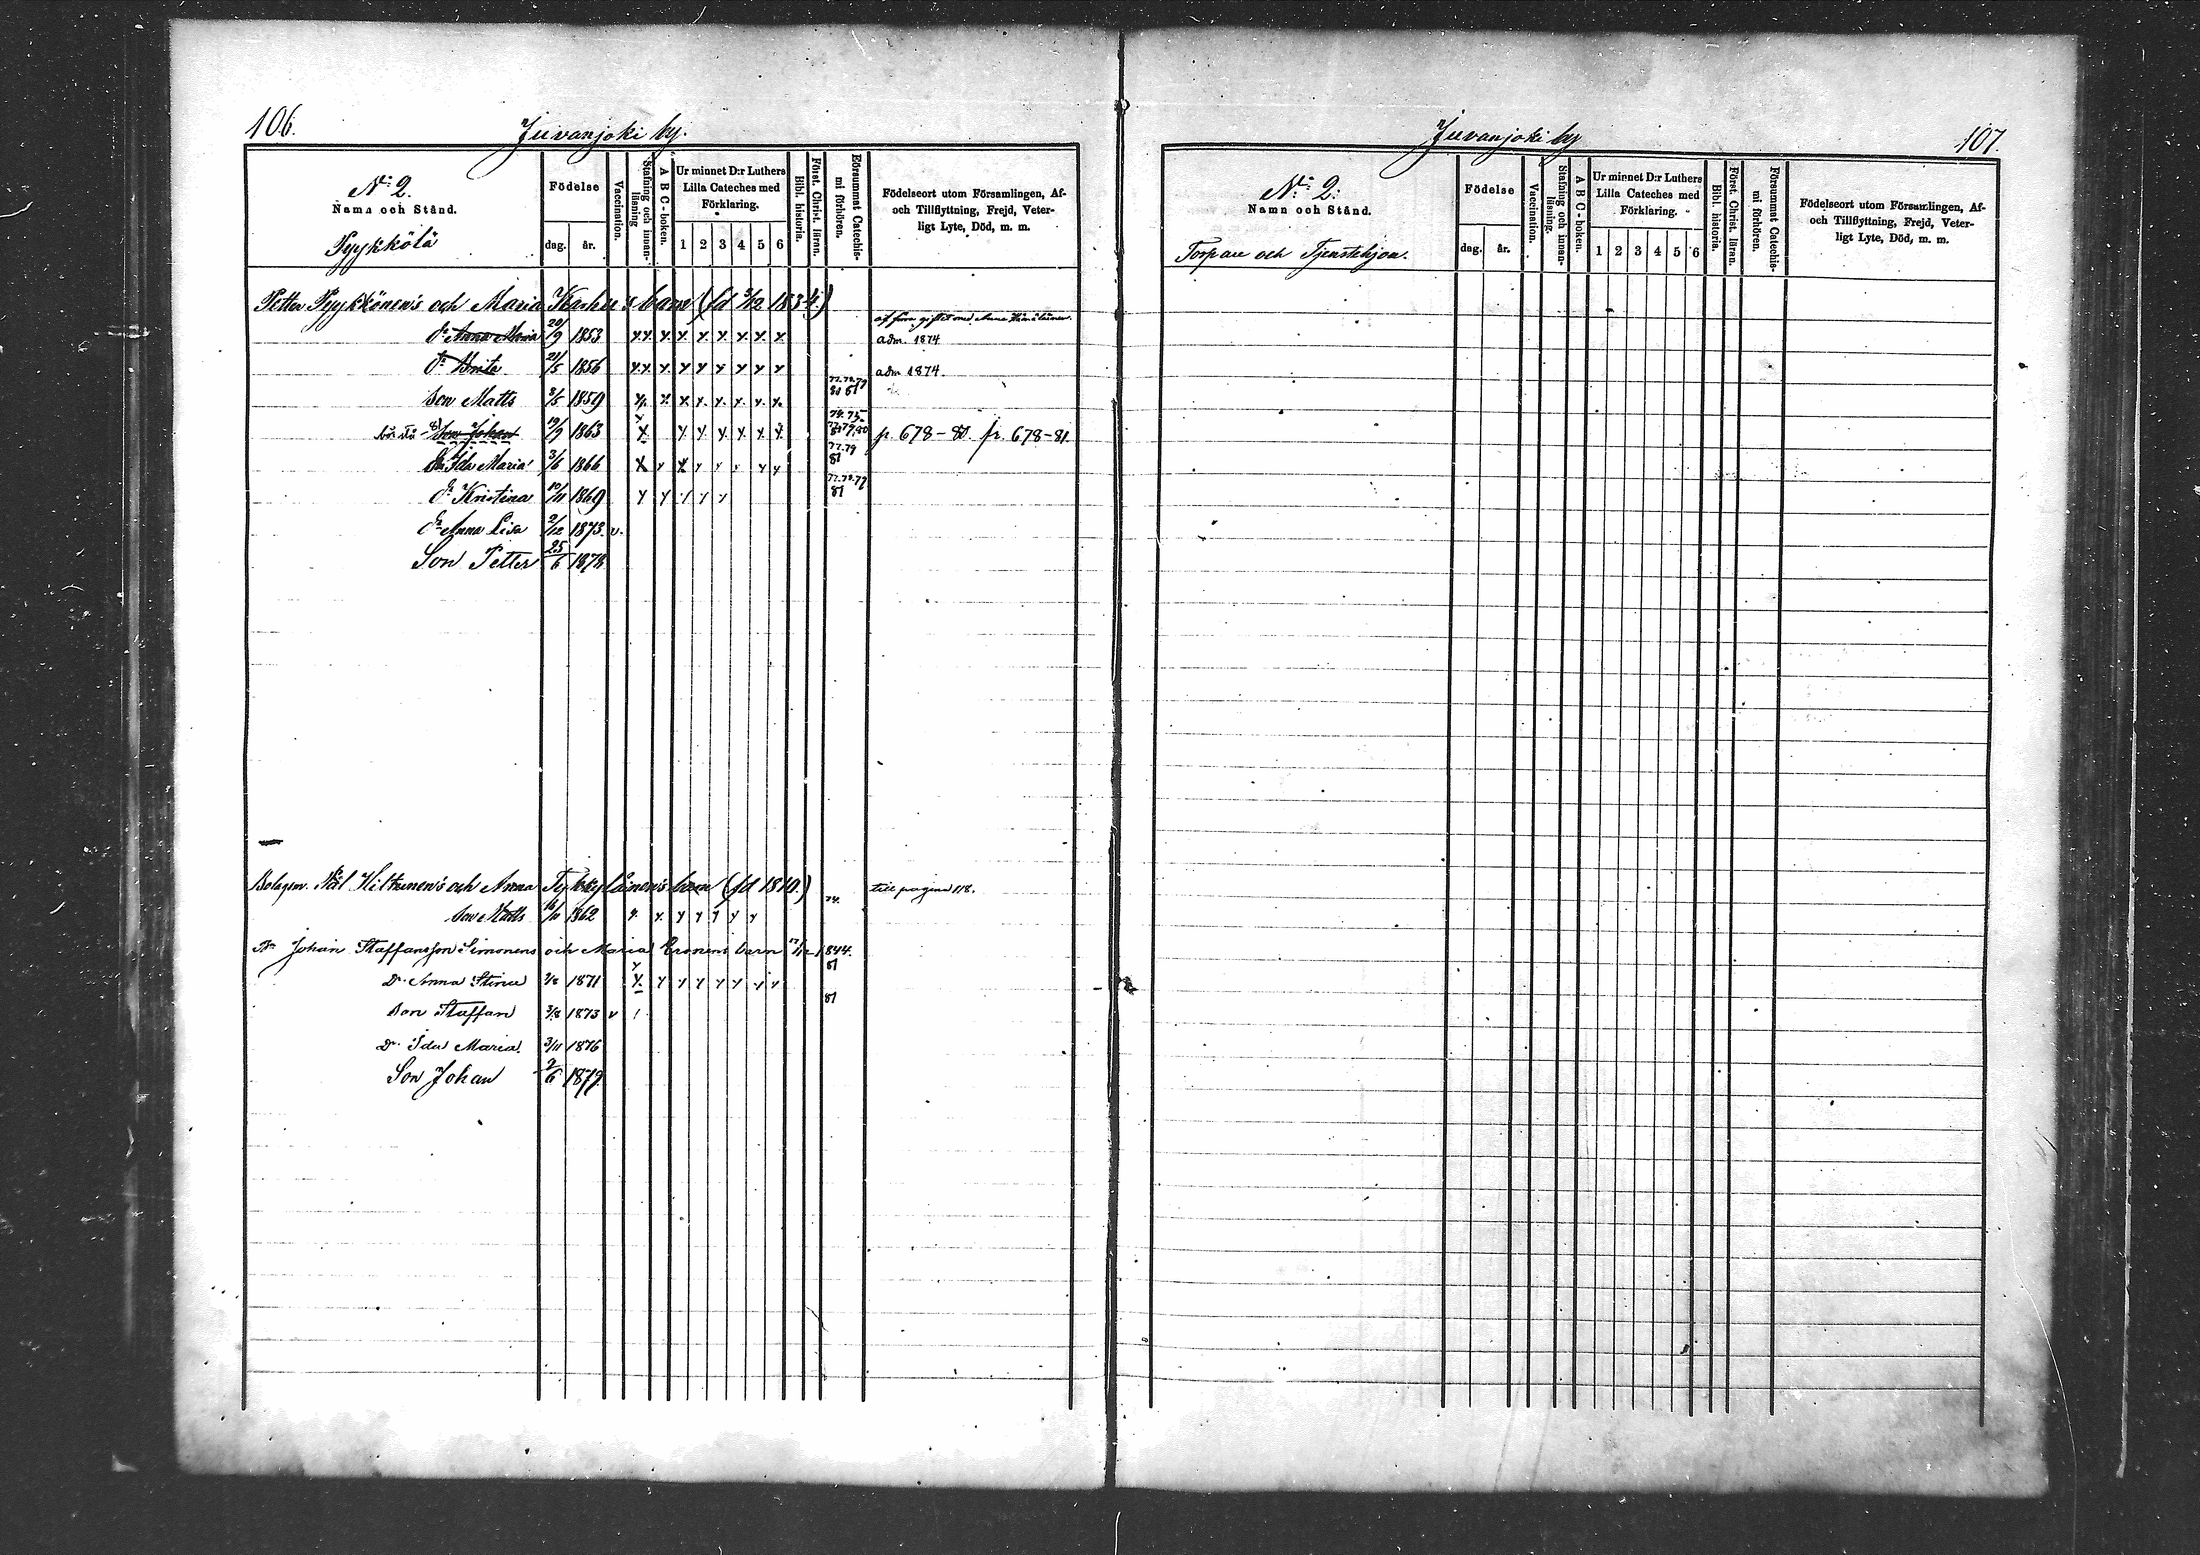 106.
Juvanjoki by.
N:o 2.
Namn och Stånd.
Pyykkölä
Födelse
dag. år.
Vaccination.
Stafning och innan-läsning
A B C-boken.
Ur minnet D:r Luthers
Lilla Cateches med
Förklaring.
1 2 3 4 5 6
Bibl. historia.
Först. Christ. läran.
Försummat Catechis-
mi förhören.
Födelseort utom Församlingen, Af-
och Tillflyttning, Frejd, Veter-
ligt Lyte, Död, m. m.
Petter Pyykkönen's och Maria Karhu's barn (fd 3/12 1834.)
D:r Anna Maria 20/9 1853 x x x x x x x x x adm. 1874
D:r Brita 21/5 1856 x x x x x x x x x adm 1874.
Son Matts 3/5 1859 x x x x x x x x
Son Johan 19/9 1863 x x x x x x x p. 678-80. fr. 678-81
D:r Ida Maria 3/6 1866 x x x x x x x x 77.79 81
D:r Kristina 10/11 1869 x x x x x 81
D:r Anna Lisa 2/12 1873. v.
Son Petter 25/6 1878
Bolagsm. Pål Hiltunen's och Anna Tykkyläinen's barn (fd 1810.) till pagina 118.
Son Matts 16/11 1862 x x x x x x x 74.
Johan Staffansson Simonens och Maria Eronens barn 1844.
D:r Anna Stina 1871 x x x x x x x x 81
Son Staffan 3/8 1873 v 81
D:r Ida Maria. 3/11 1876
Son Johan 2/6 1879
Juvanjoki by
107.
N:o 2.
Namn och Stånd.
Torpare och Tjenstehjon.
Födelse
dag. år.
Vaccination.
Stafning och innan-läsning.
A B C-boken.
Ur minnet D:r Luthers
Lilla Cateches med
Förklaring.
1 2 3 4 5 6
Bibl. historia.
Först. Christ. läran.
Försummat Catechis-
mi förhören.
Födelseort utom Församlingen, Af-
och Tillflyttning, Frejd, Veter-
ligt Lyte, Död, m. m.